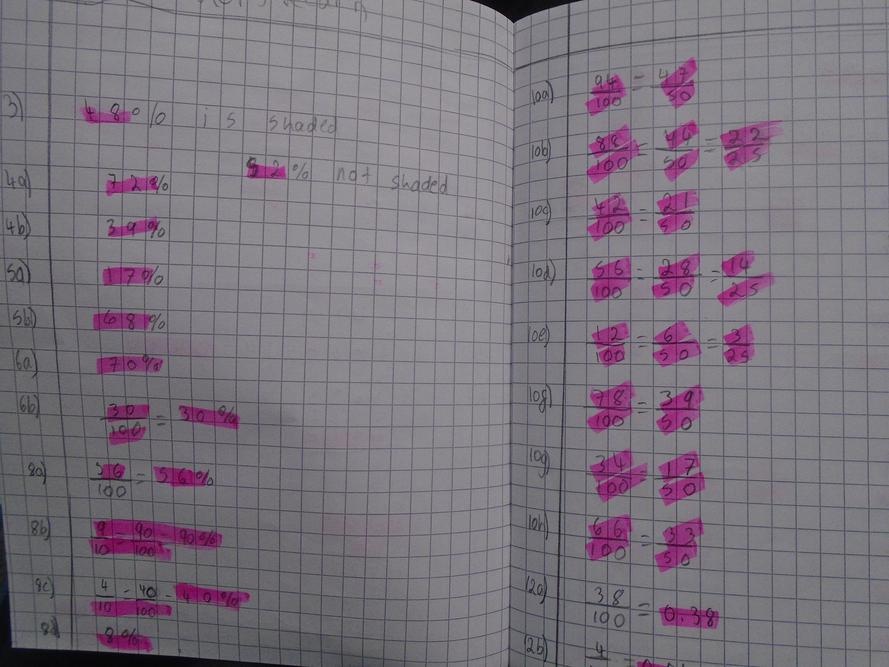 3) 48% is shaded
52% not shaded
4a) 72%
4b) 39%
5a) 17%
5b) 68%
6a) 70%
6b) 30/100 = 30%
8a) 36/100 = 56%
8b) 9/10 = 90/100 = 90%
8c) 4/10 = 40/100 = 40%
8d) 8%
10a) 94/100 = 47/50
10b) 88/100 = 44/50 = 22/25
10c) 42/100 = 21/50
10d) 56/100 = 28/50 = 14/25
10e) 12/100 = 6/50 = 3/25
78/100 = 39/50
10g) 34/100 = 17/50
10h) 66/100 = 33/50
12a) 38/100 = 0.38
12b) 4